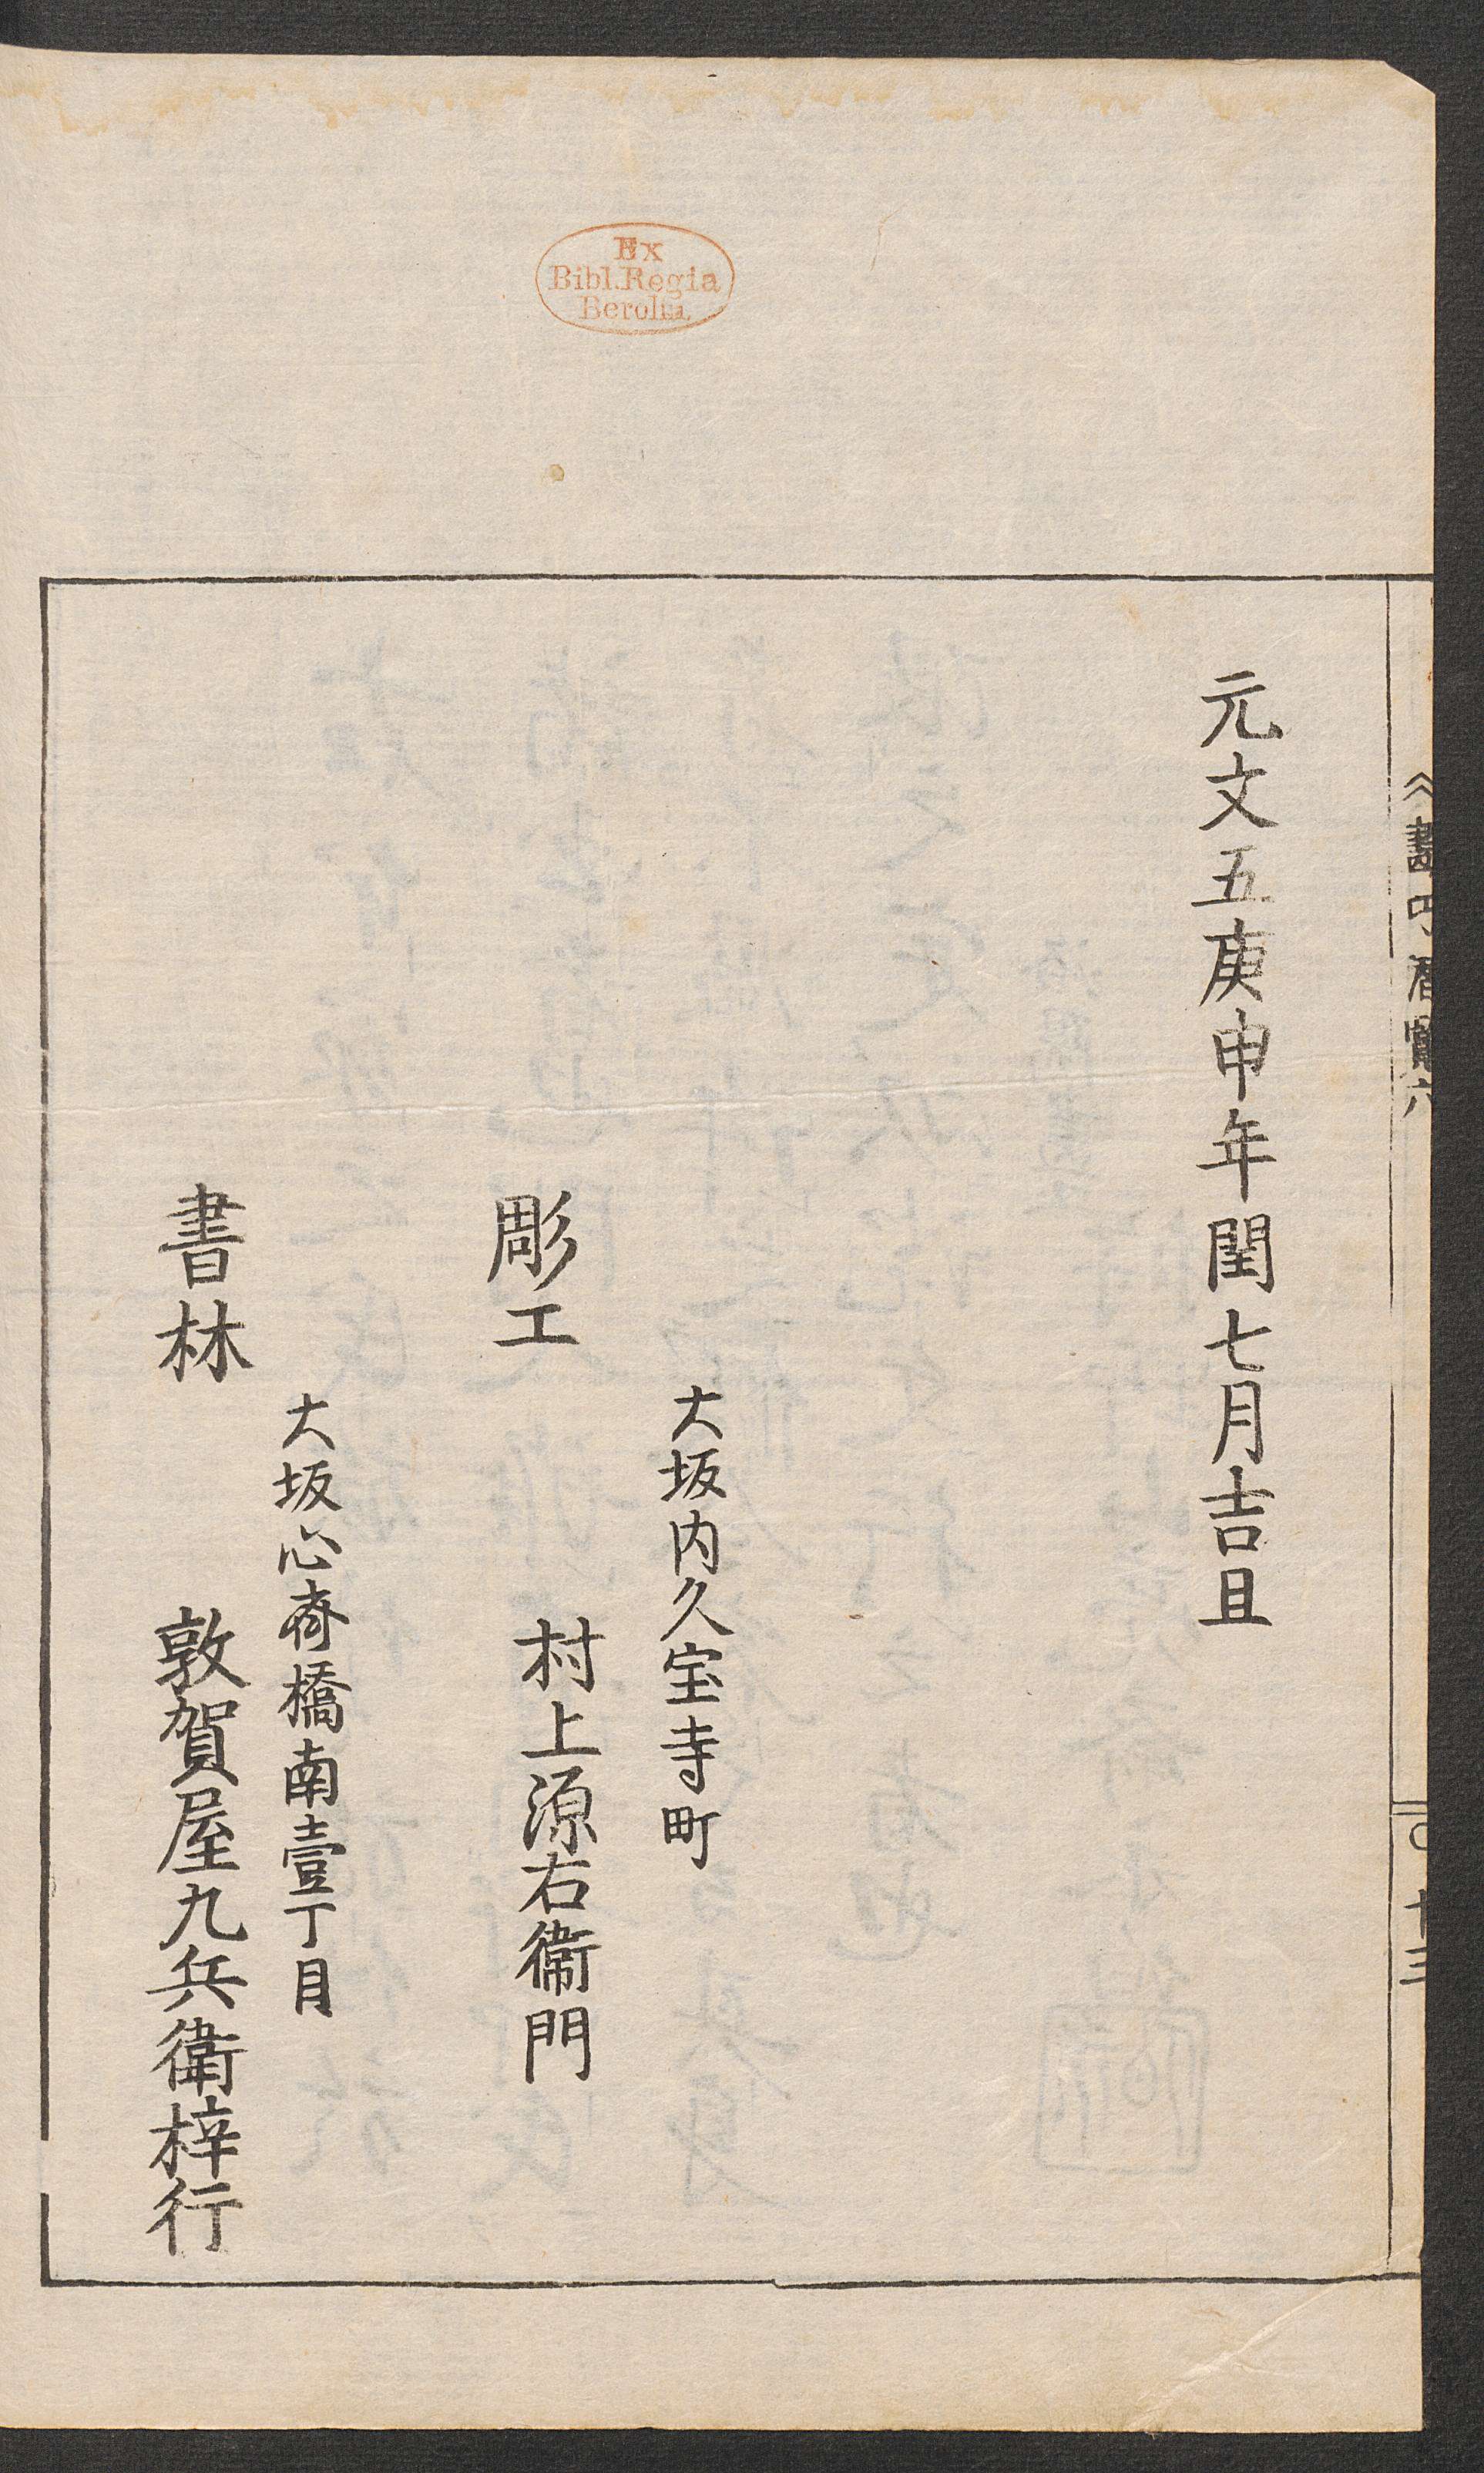 Ex
Bibl. Regia
Berolin.
元文五庚申年閏七月吉旦
大坂内久宝寺町
彫工 村上源右衛門
大坂心斎橋南壹丁目
書林 敦賀屋九兵衛梓行
十三